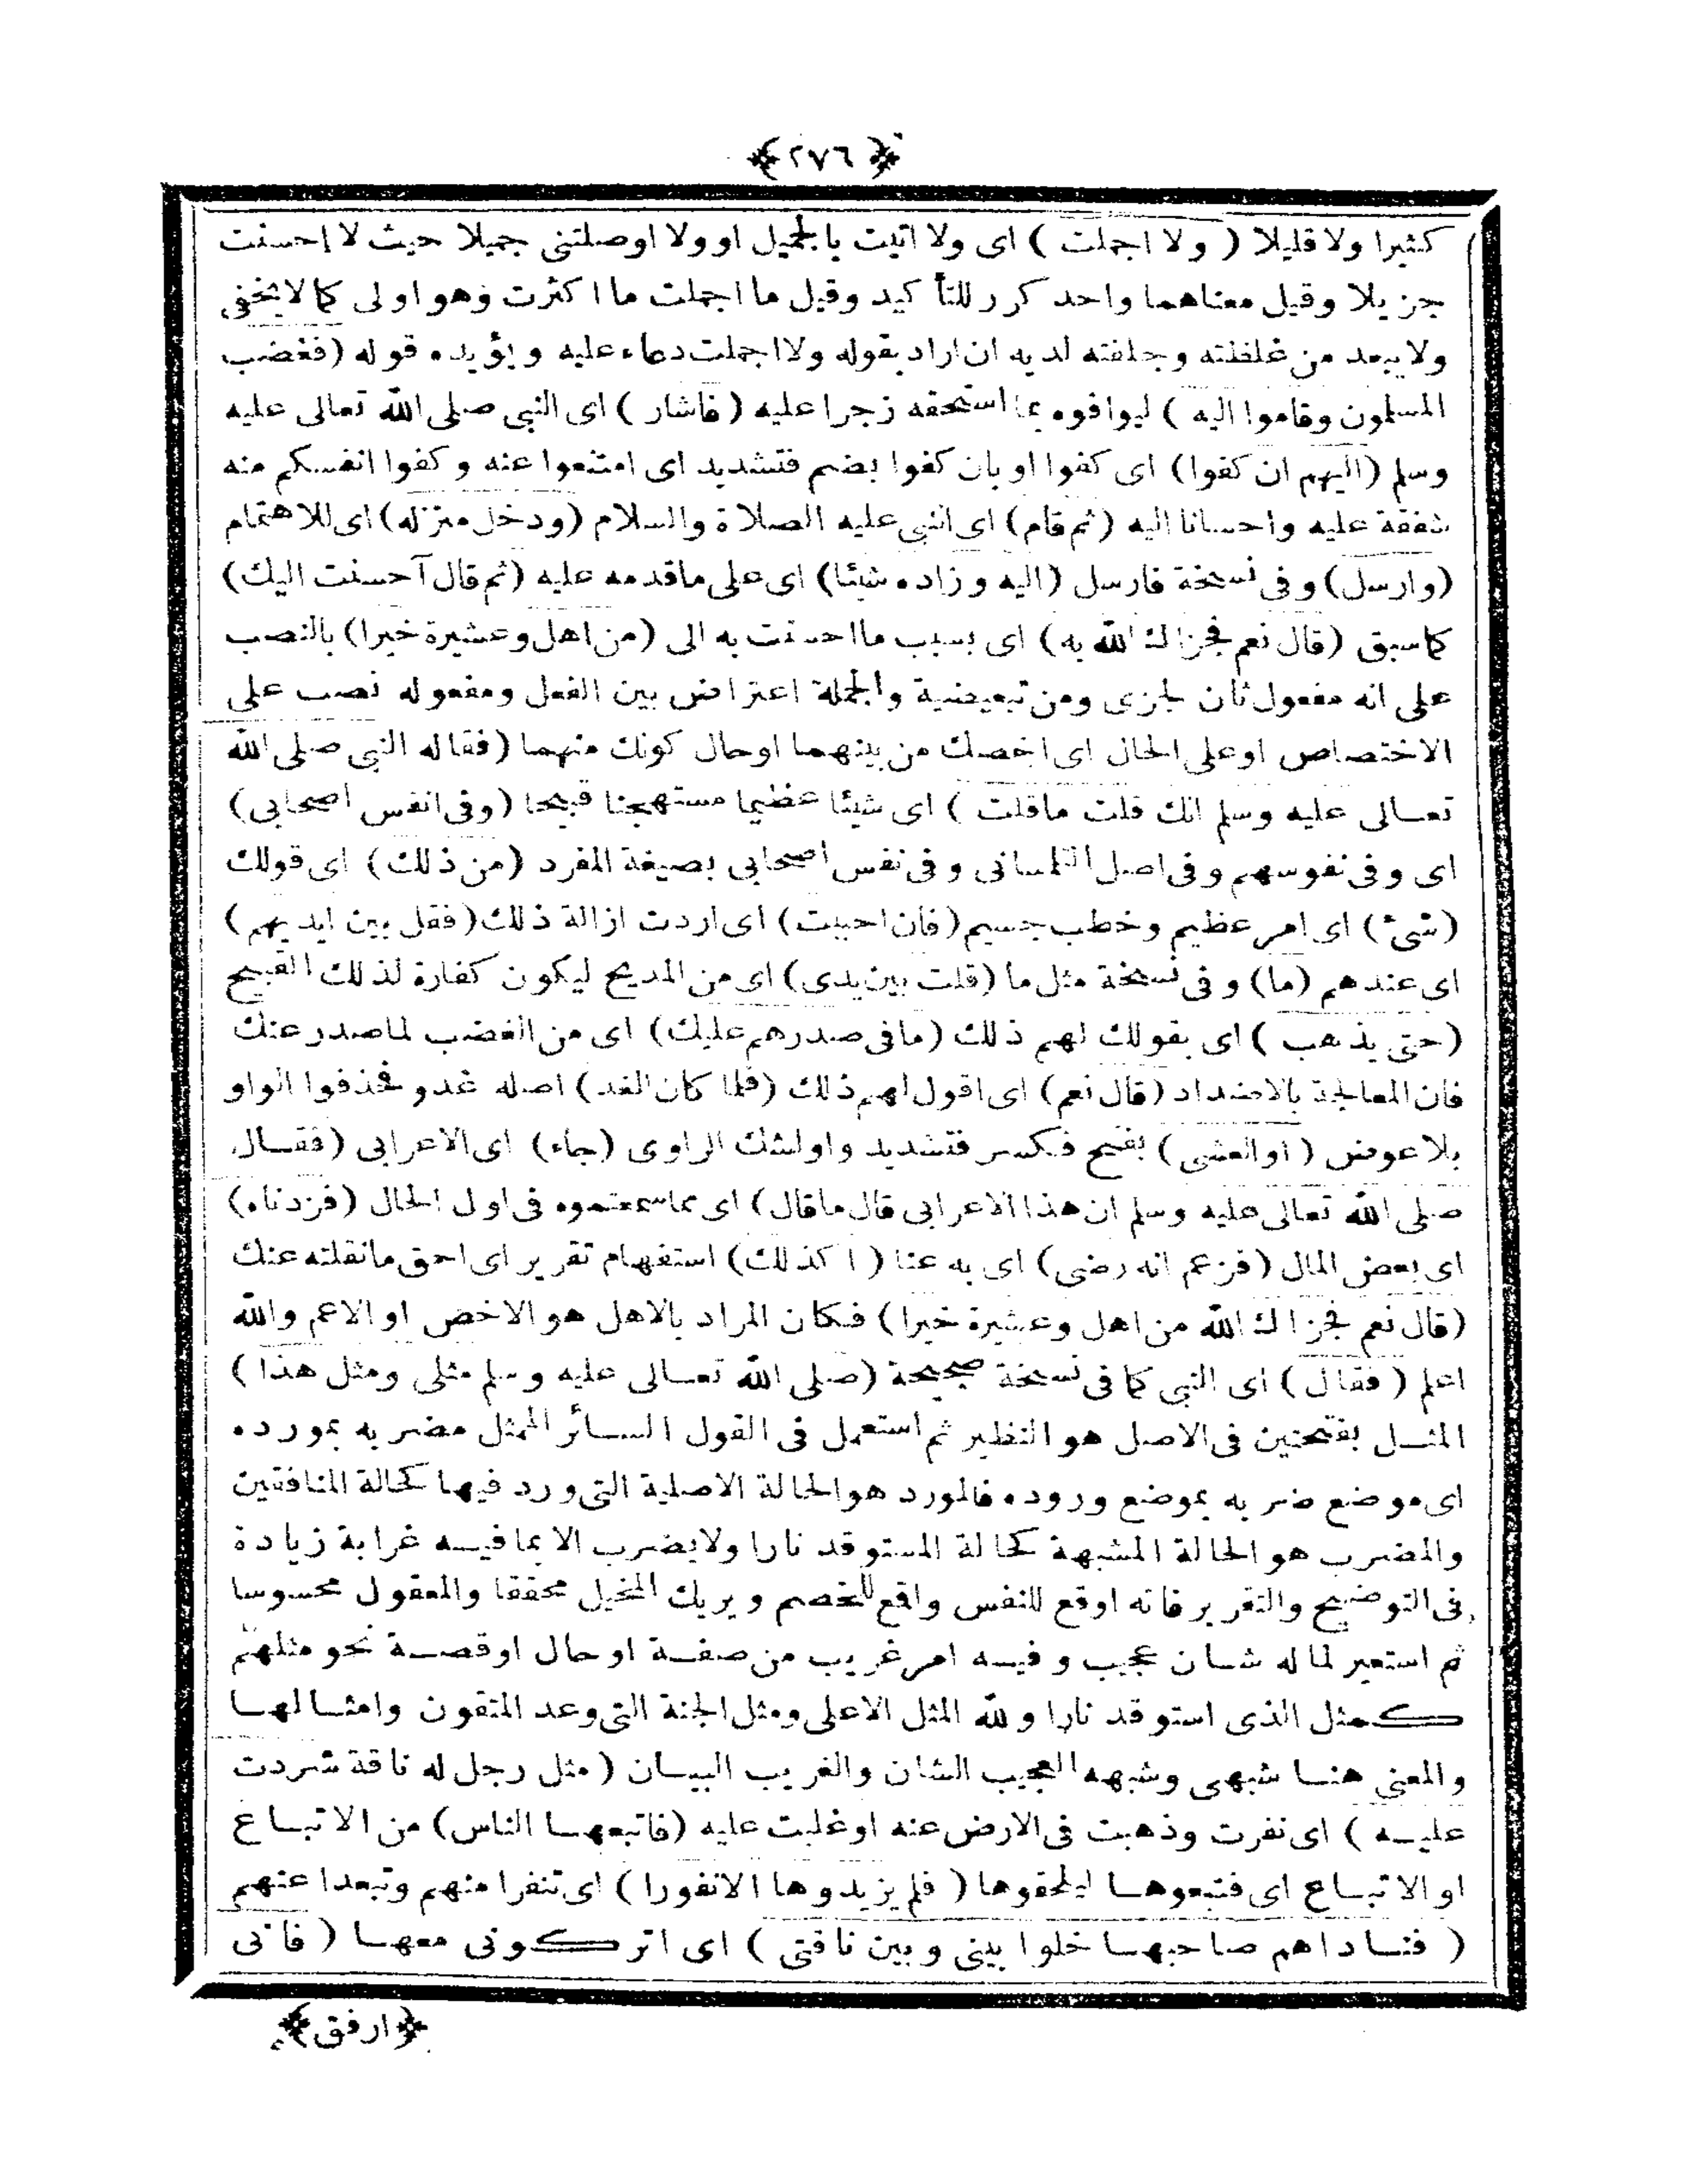 ﴿ ٢٧٦ ﴾
كثيرا ولا قليلا ( ولا اجملت ) اى ولا اتيت بالجميل او ولا اوصلتنى جميلا حيث لا احسنت
جزيلا وقيل معناهما واحد كرر للتأكيد وقيل ما اجملت ما اكثرت وهو اولى كما لا يخفى
ولا يبعد من غلظته وجلفته لديه ان اراد بقوله ولا اجملت دعاء عليه ويؤيده قوله (فغضب
المسلمون وقاموا اليه ) ليوافوه بما استحقه زجرا عليه (فاشار ) اى النبى صلى الله تعالى عليه
وسلم (اليهم ان كفوا) اى كفوا او بان كفوا بضم فتشديد اى امتنعوا عنه وكفوا انفسكم منه
شفقة عليه واحسانا اليه (ثم قام) اى النبى عليه الصلاة والسلام (ودخل منزله) اى للاهتمام
(وارسل) وفى نسخة فارسل (اليه وزاده شيئا) اى على ما قدمه عليه (ثم قال آحسنت اليك)
كما سبق (قال نعم فجزاك الله به) اى بسبب ما احسنت به الى (من اهل وعشيرة خيرا) بالنصب
على انه مفعول ثان لجزى ومن تبعيضية والجملة اعتراض بين الفعل ومفعوله نصب على
الاختصاص او على الحال اى اخصك من بينهما او حال كونك منهما (فقاله النبى صلى الله
تعالى عليه وسلم انك قلت ما قلت ) اى شيئا عظيما مستهجنا قبيحا (وفى انفس اصحابى)
اى وفى نفوسهم وفى اصل التلمسانى وفى نفس اصحابى بصيغة المفرد (من ذلك) اى قولك
(شىء) اى امر عظيم وخطب جسيم (فان احببت) اى اردت ازالة ذلك (فقل بين ايديهم)
اى عندهم (ما) وفى نسخة مثل ما (قلت بين يدى) اى من المديح ليكون كفارة لذلك القبيح
(حتى يذهب ) اى بقولك لهم ذلك (ما فى صدرهم عليك) اى من الغضب لما صدر عنك
فان المعالجة بالاضداد (قال نعم) اى اقول لهم ذلك (فلما كان الغد) اصله غدو فحذفوا الواو
بلا عوض (او العشى) بفتح فكسر فتشديد واو لشك الراوى (جاء) اى الاعرابى (فقال
صلى الله تعالى عليه وسلم ان هذا الاعرابى قال ما قال) اى مما سمعتموه فى اول الحال (فزدناه)
اى بعض المال (فزعم انه رضى) اى به عنا ( اكذلك) استفهام تقرير اى احق ما نقلته عنك
(قال نعم فجزاك الله من اهل وعشيرة خيرا) فكان المراد بالاهل هو الاخص او الاعم والله
اعلم (فقال) اى النبى كما فى نسخة صحيحة (صلى الله تعالى عليه وسلم مثلى ومثل هذا )
المثل بفتحتين فى الاصل هو النظير ثم استعمل فى القول السائر الممثل مضربه بمورده
اى موضع ضربه بموضع وروده فالمورد هو الحالة الاصلية التى ورد فيها كحالة المنافقين
والمضرب هو الحالة المشبهة كحالة المستوقد نارا ولا يضرب الا بما فيه غرابة زيادة
فى التوضيح والتقرير فانه اوقع للنفس واقع للخصم ويريك المخيل محققا والمعقول محسوسا
ثم استعير لما له شان عجيب وفيه امر غريب من صفة او حال او قصة نحو مثلهم
كمثل الذى استوقد نارا ولله المثل الاعلى ومثل الجنة التى وعد المتقون وامثالها
والمعنى هنا شبهى وشبهه العجيب الشان والغريب البيان ( مثل رجل له ناقة شردت
عليه ) اى نفرت وذهبت فى الارض عنه او غلبت عليه (فاتبعها الناس) من الاتباع
او الاتباع اى فتبعوها ليلحقوها (فلم يزيدوها الا نفورا ) اى تنفرا منهم وتبعدا عنهم
( فناداهم صاحبها خلوا بينى وبين ناقتى ) اى اتركونى معها (فانى
﴿ارفق﴾